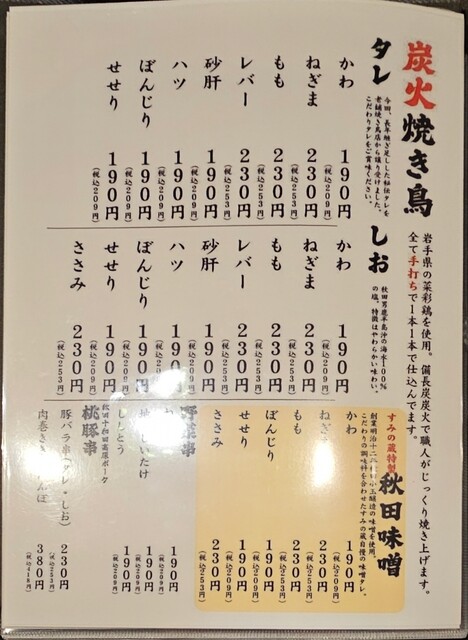 炭火焼き鳥
岩手県の菜彩鶏を使用。備長炭炭火で職人がじっくり焼き上げます。
全て手打ちで1本1本で仕込んでます。
タレ
今回、長年継ぎ足しした秘伝タレを
老舗焼き鳥店から譲り受けました。
こだわりタレをご賞味ください。
かわ 190円(税込209円)
ねぎま 230円(税込253円)
もも 230円(税込253円)
レバー 230円(税込253円)
砂肝 190円(税込209円)
ハツ 190円(税込209円)
ぼんじり 190円(税込209円)
せせり 190円(税込209円)
しお
秋田男鹿半島沖の海水100%
の塩。特徴はやわらかい味わい。
かわ 190円(税込209円)
ねぎま 230円(税込253円)
もも 230円(税込253円)
レバー 230円(税込253円)
砂肝 190円(税込209円)
ハツ 190円(税込209円)
ぼんじり 190円(税込209円)
せせり 190円(税込209円)
ささみ 230円(税込253円)
すみの蔵特製
秋田味噌
創業明治十二 小玉醸造の味噌を使用。
こだわりの調味料を合わせたすみの蔵自慢の味噌タレ。
かわ 190円(税込209円)
ねぎま 230円(税込253円)
もも 230円(税込253円)
ぼんじり 190円(税込209円)
せせり 190円(税込209円)
ささみ 230円(税込253円)
野菜串
190円(税込209円)
しいたけ 190円(税込209円)
ししとう 190円(税込209円)
秋田十和田高原ポーク
桃豚串
豚バラ串(タレ・しお) 230円(税込253円)
肉巻き 380円(税込418円)